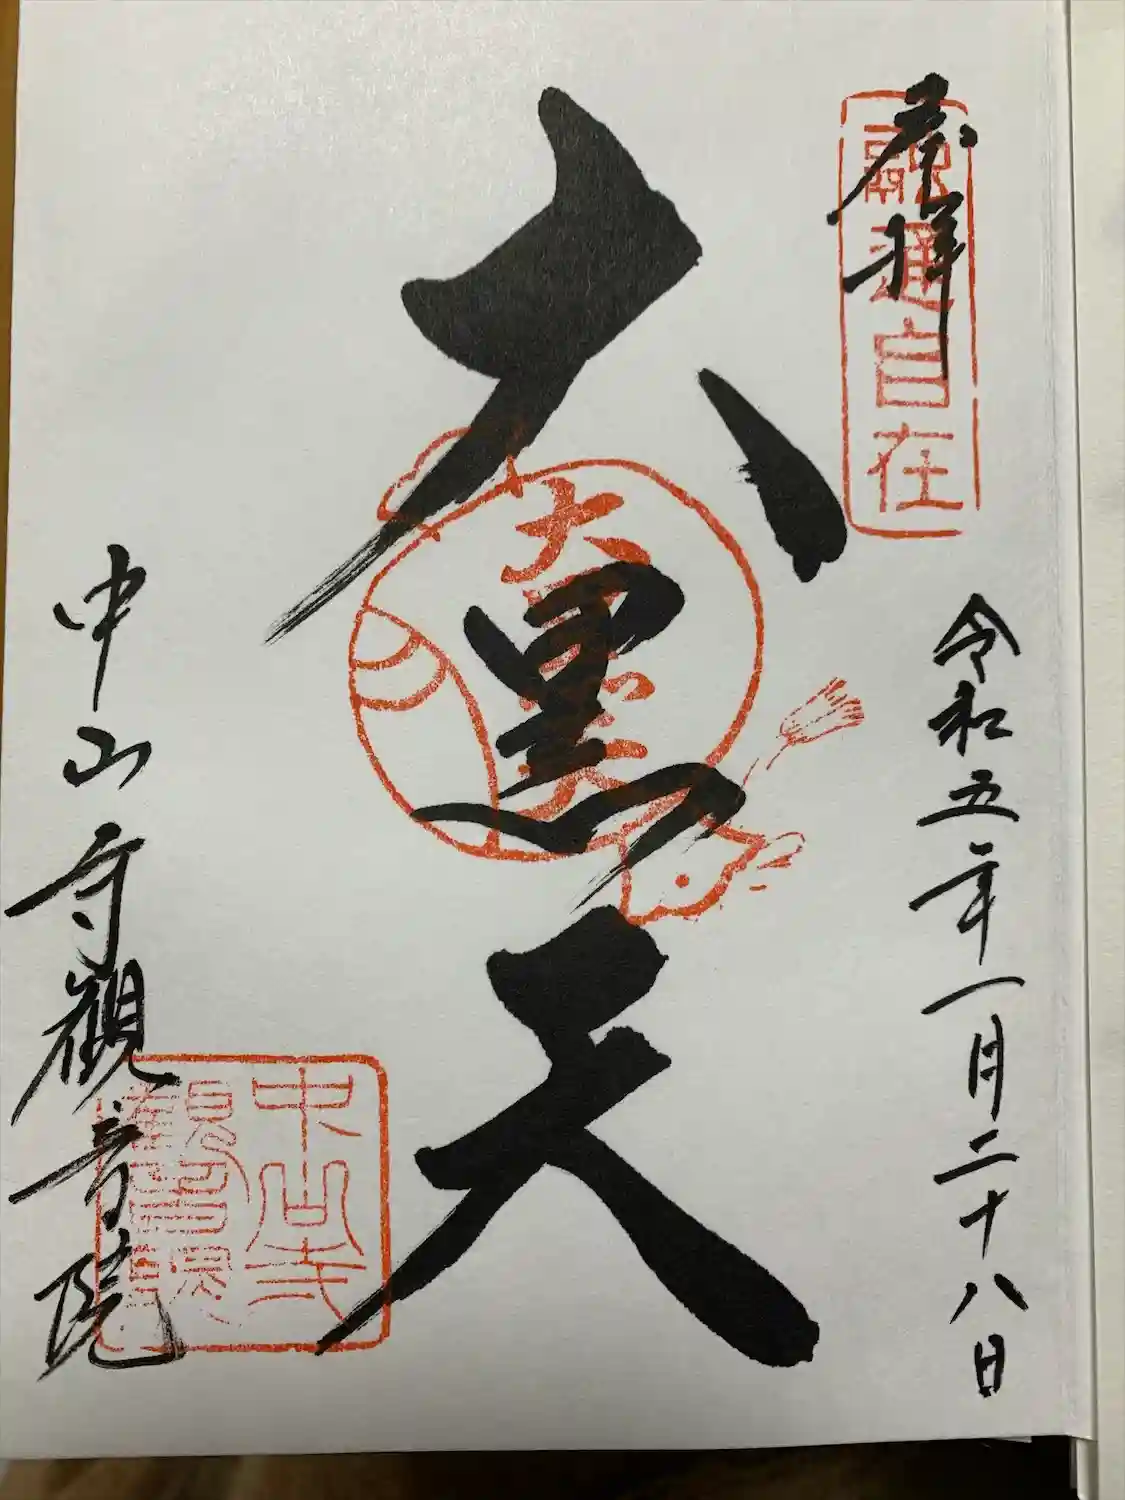 奉拝
融通自在
令和五年一月二十八日
大黒天
大黒天
中山寺観音院
中山寺
観音院